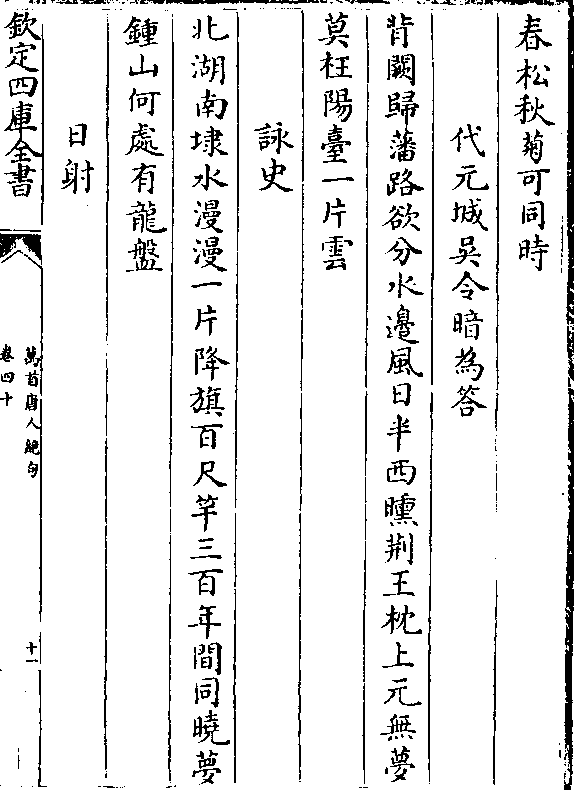 春松秋菊可同時
代元城吳令暗為答
背闕歸藩路欲分水邊風日半西曛荆王枕上元無夢
莫枉陽臺一片雲
詠史
北湖南埭水漫漫一片降旗百尺竿三百年間同曉夢
鍾山何處有龍盤
日射
欽定四庫全書
萬首唐人絶句
卷四十
十一